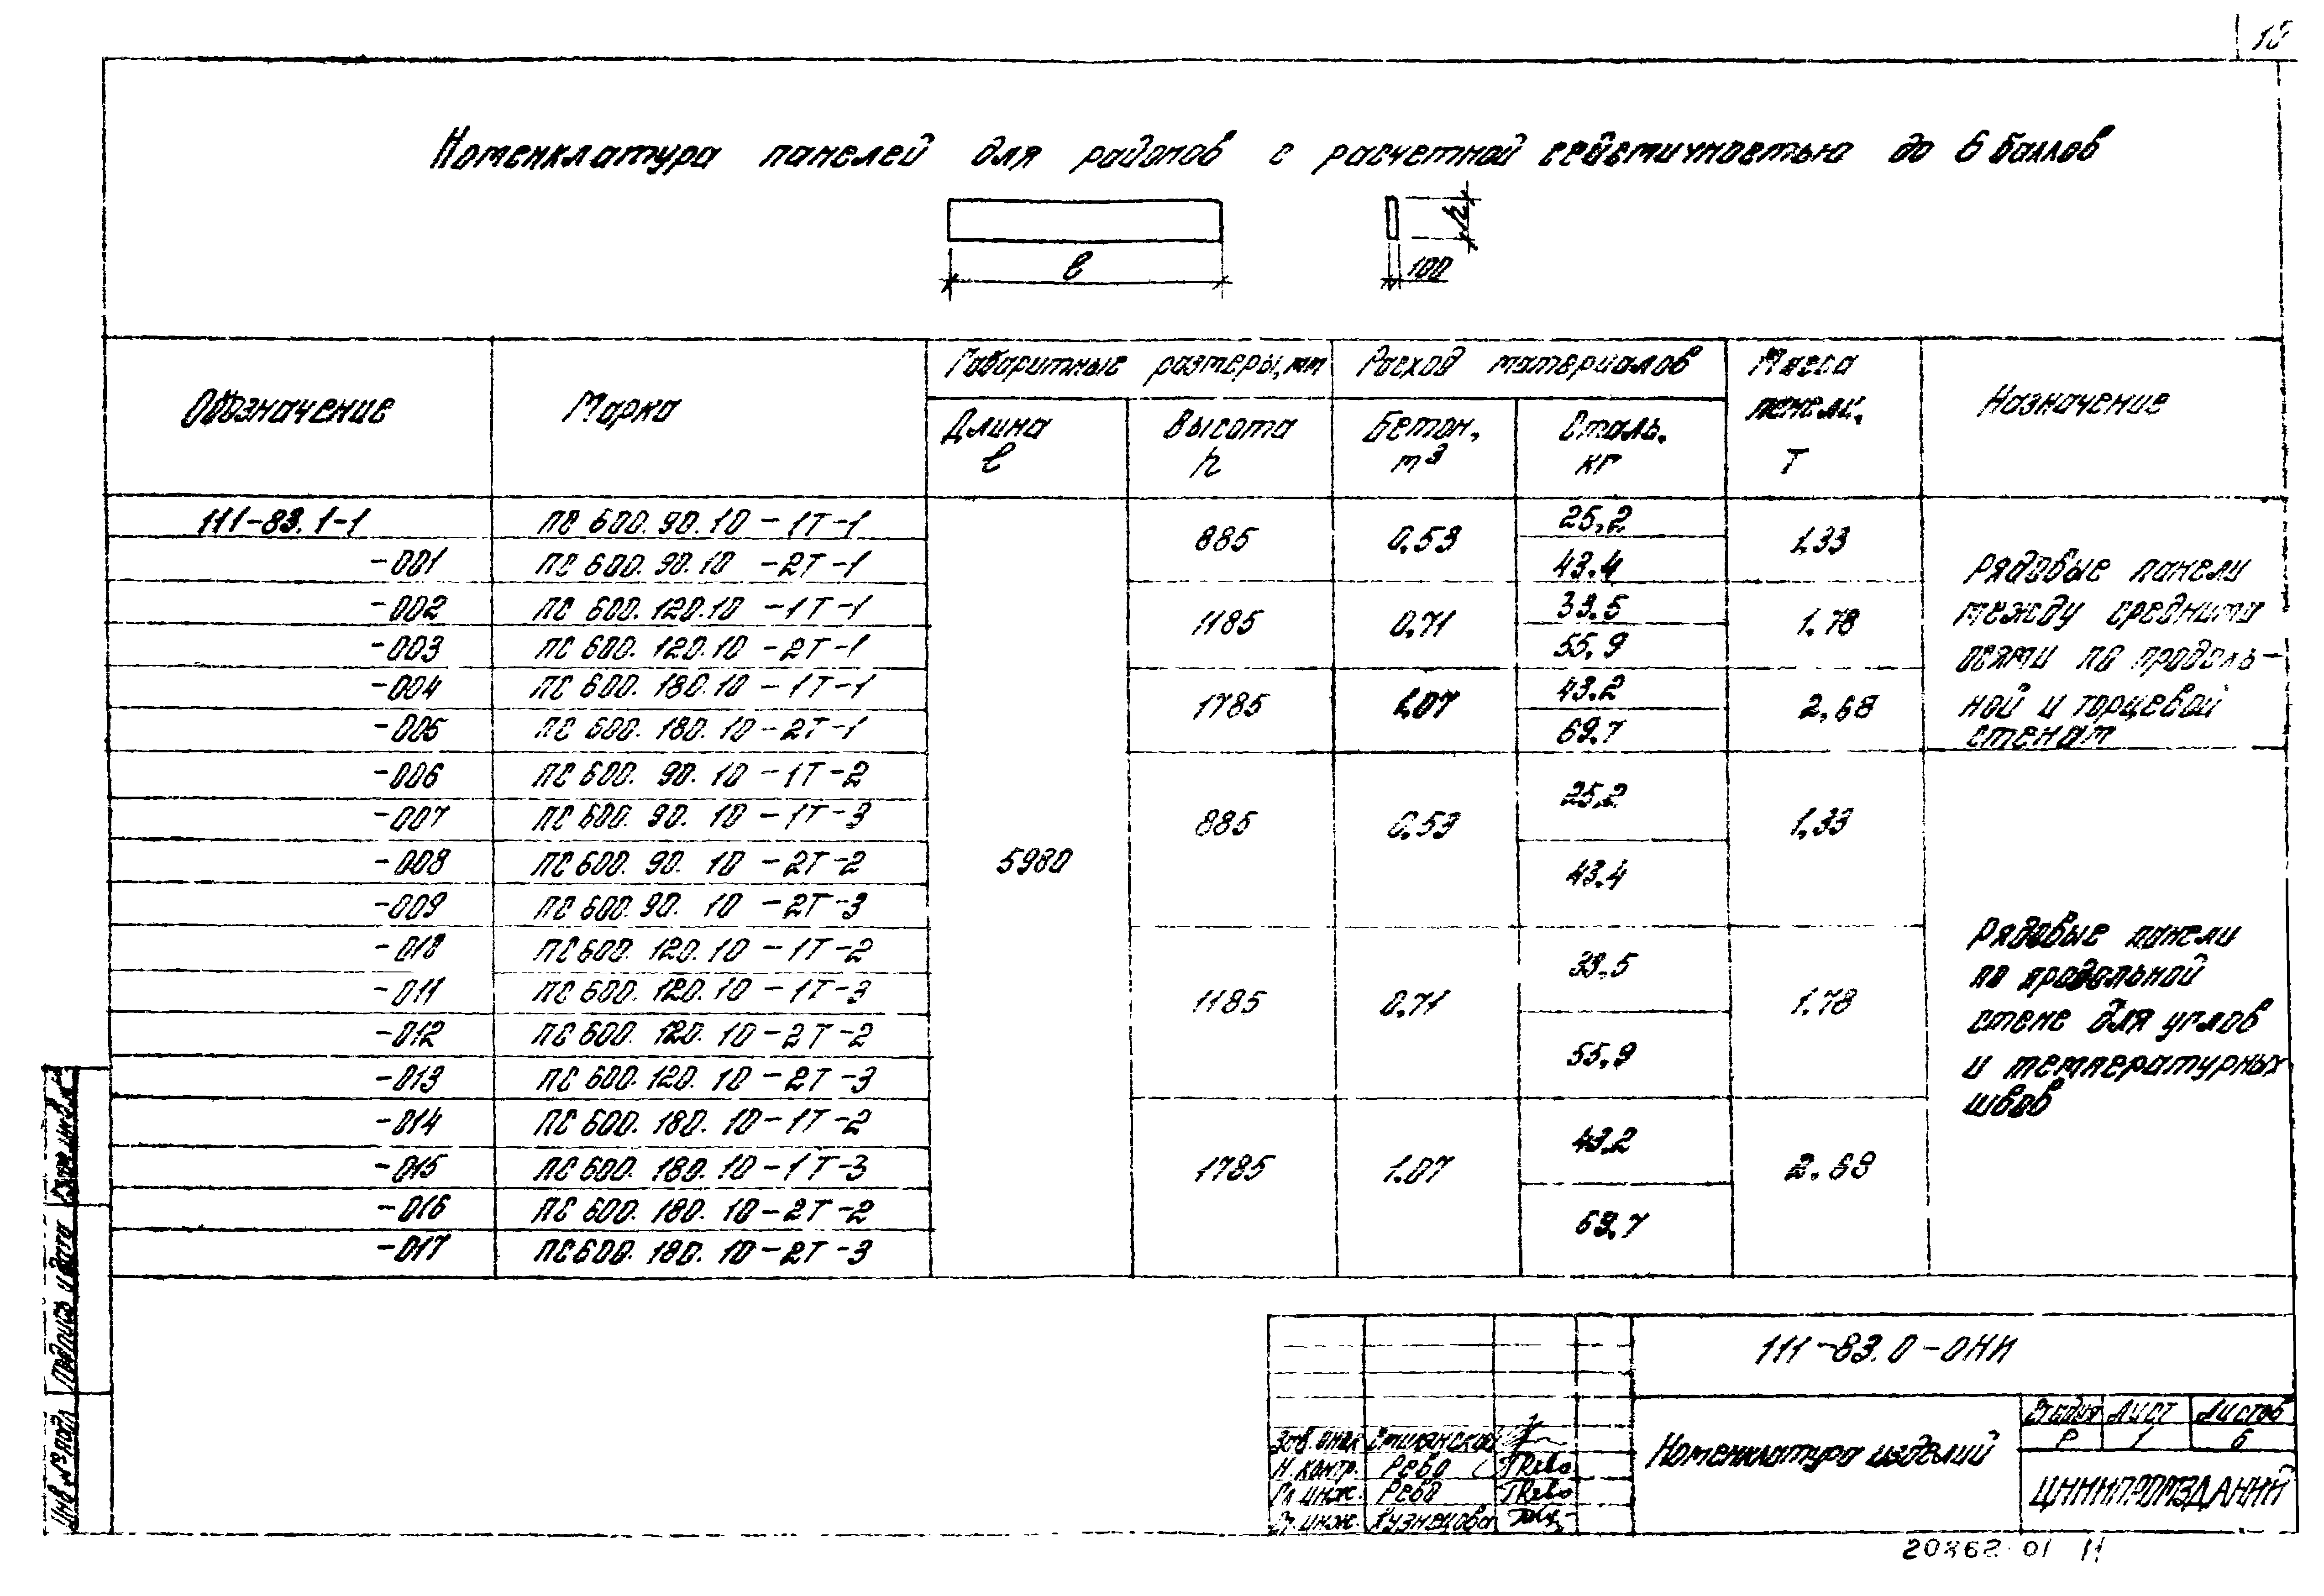 Номенклатура панелей для районов с расчетной сейсмичностью до 6 баллов
ℓ
100
h
Обозначение
Марка
Габаритные размеры, мм
Расход материалов
Масса панели, Т
Назначение
Длина ℓ
Высота h
Бетон, м³
Сталь, кг
111-83.1-1 ПС 600.90.10-1Т-1 5980 885 0,53 25,2 1,33
-001 ПС 600.90.10-2Т-1 43.4
-002 ПС 600.120.10-1Т-1 1185 0,71 33.5 1.78
-003 ПС 600.120.10-2Т-1 55.9
-004 ПС 600.180.10-1Т-1 1785 1,07 43.2 2,68
-005 ПС 600.180.10-2Т-1 69.7
Рядовые панели
между средними
осями по продоль-
ной и торцевой
стенам
-006 ПС 600.90.10-1Т-2 885 0,53 25,2 1,33
-007 ПС 600.90.10-1Т-3
-008 ПС 600.90.10-2Т-2 43.4
-009 ПС 600.90.10-2Т-3
-010 ПС 600.120.10-1Т-2 1185 0,71 33.5 1.78
-011 ПС 600.120.10-1Т-3
-012 ПС 600.120.10-2Т-2 55.9
-013 ПС 600.120.10-2Т-3
-014 ПС 600.180.10-1Т-2 1785 1.07 43.2 2.68
-015 ПС 600.180.10-1Т-3
-016 ПС 600.180.10-2Т-2 69.7
-017 ПС 600.180.10-2Т-3
Рядовые панели
по продольной
стене для углов
и температурных
швов
111-83.0-0НИ
Номенклатура изделий
Стадия Лист Листов
Р 1 6
ЦНИИПРОМЗДАНИЙ
Н. контр. Рево
Гл инж. Рево
Ст. инж. Кузнецова
Инв № подл
Подпись и дата
Взам. инв. №
20862-01 11